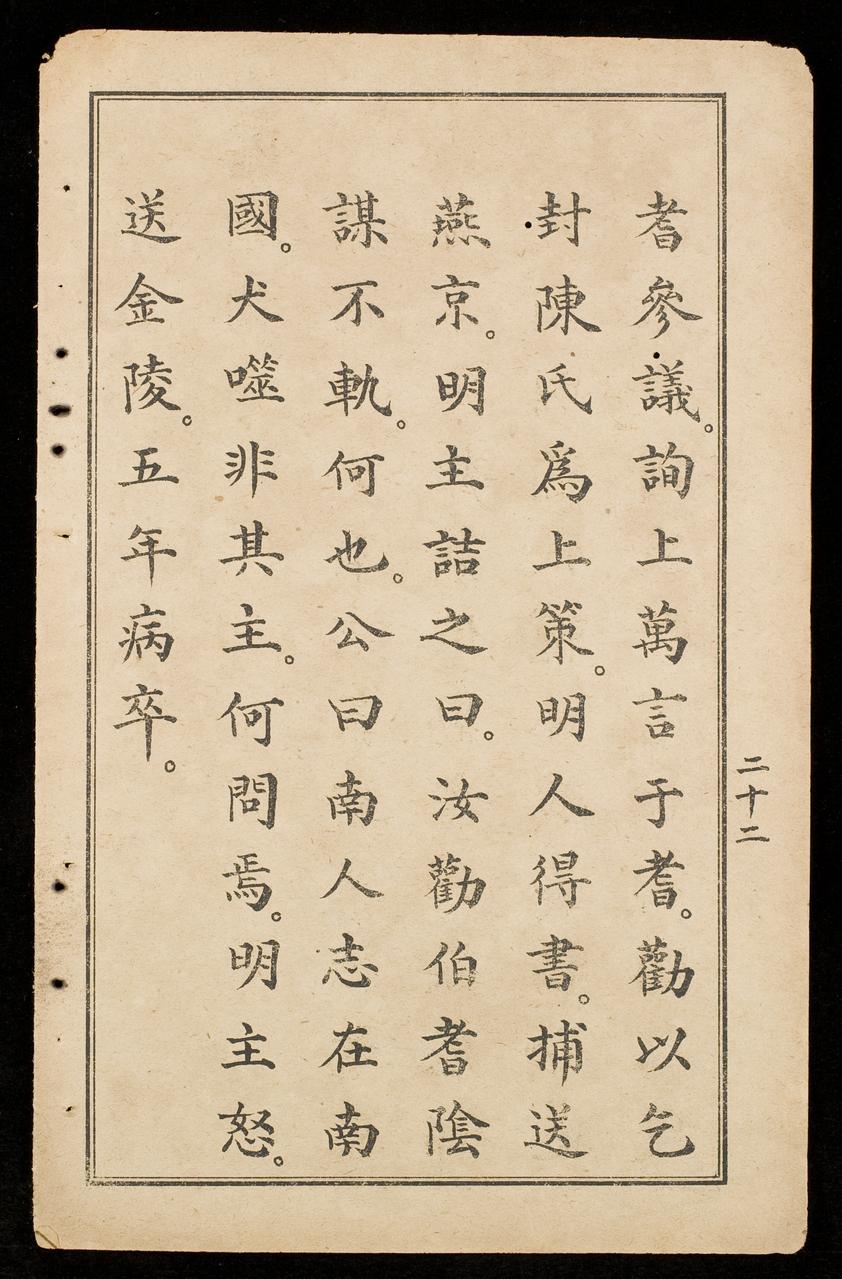 耆參議。詢上萬言于耆。勸以乞
封陳氏爲上策。明人得書。捕送
燕京。明主詰之曰。汝勸伯耆陰
謀不軌。何也。公曰南人志在南
國。犬噬非其主。何問焉。明主怒。
送金陵。五年病卒。
二十二